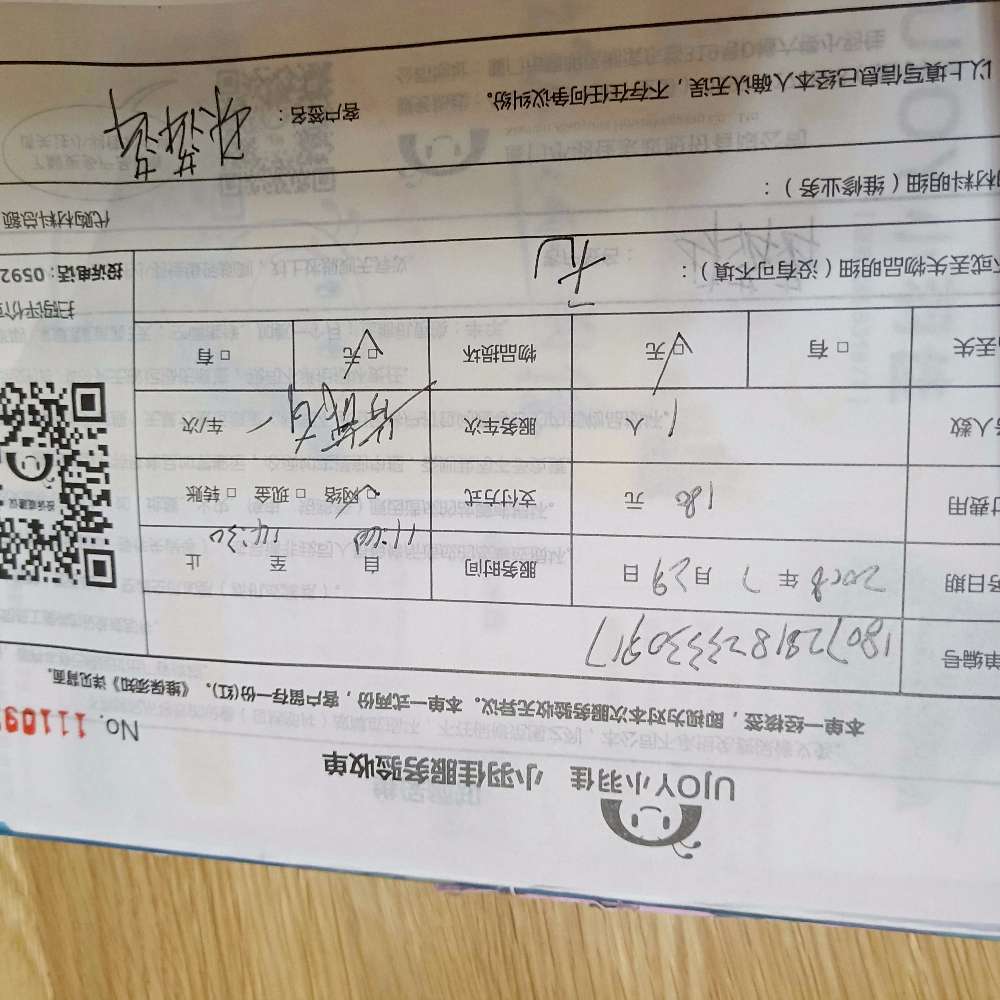 UJOY小羽佳 小羽佳服务验收单
No. 11109
本单一经接签，即视为对本次服务验收无异议。本单一式两份，客户留存一份(红)。《维保须知》详见背面。
单编号 180728182333 0917
务日期 2008年7月29日 服务时间 自11:40至14:30止
付费用 180元 支付方式 ☑网络 □现金 □转账
务人数 1人 服务车次 车/次
品丢失 □有 ☑无 物品损坏 ☑无 □有
扫码评价
投诉电话：0592
坏或丢失物品明细（没有可不填）：无
购材料明细（维修业务）： 代购材料总额
以上填写信息已经本人确认无误，不存在任何争议纠纷。 客户签名：